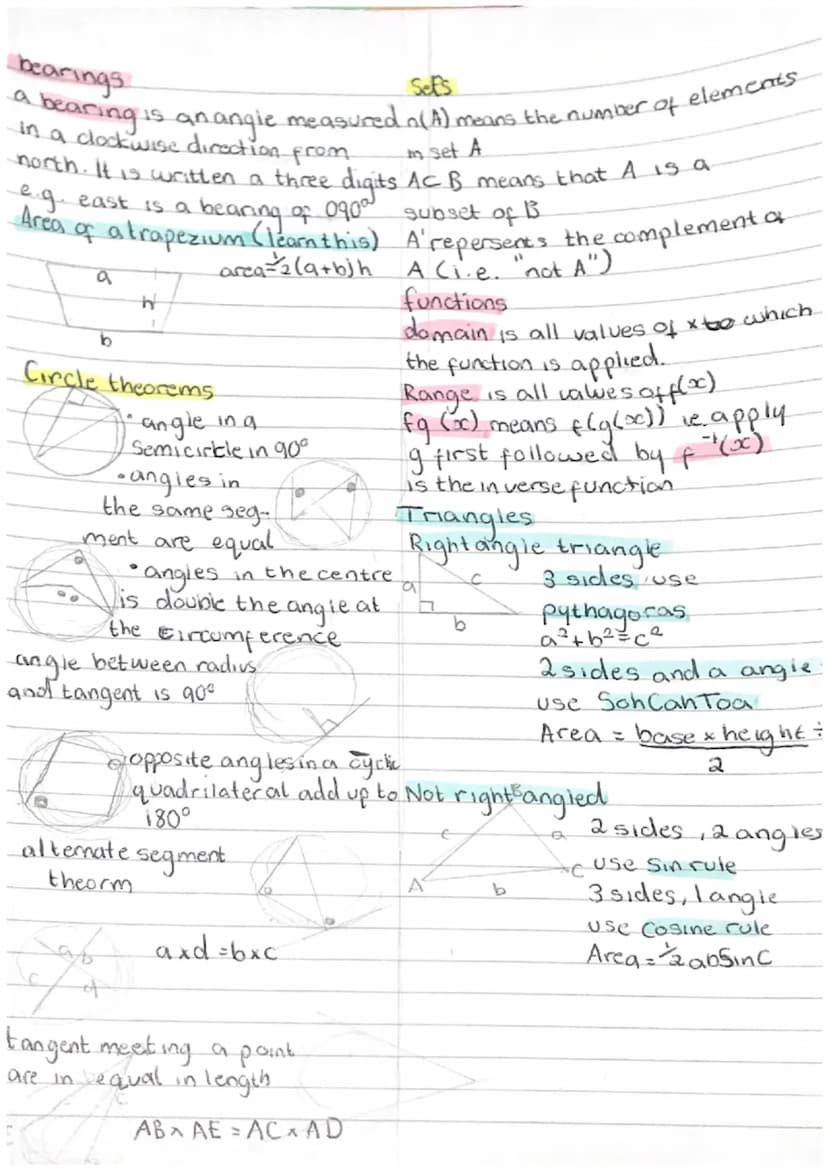 bearings
a bearing is an angle measured
in a clockwise direction from
north. It is written a three digits
e.g. east is a bearing of 090°
Area of a trapezium (learn this)
area=½(a+b)h
a
h
b
Circle theorems
• angle in a
semicirtcle in 90°
• angles in
the same seg-
ment are equal
• angles in the centre
is double the angle at
the circumference
angle between radius
and tangent is 90°
opposite angles in a cyclic
quadrilateral add up to
180°
alternate segment
theorm
a b
c d
a x d = b x c
tangent meeting a point
are in equal in length
AB x AE = AC x AD
Sets
n(A) means the number of elements
in set A
A⊂B means that A is a
subset of B
A' repersents the complement of
A (i.e. "not A")
functions
domain is all values of x to which
the function is applied.
Range is all values of f(x)
fg (x) means f(g(x)) i.e. apply
g first followed by f⁻¹(x)
is the inverse function
Triangles
Right angle triangle
a
c
b
3 sides, use
pythagoras
a²+b²=c²
2 sides and a angle
use SohCahToa
Area = base x height ÷
2
Not right angled
B
c
a
A
b
C
2 sides, 2 angles
use Sin rule
3 sides, 1 angle
use Cosine rule
Area = ½ abSinC